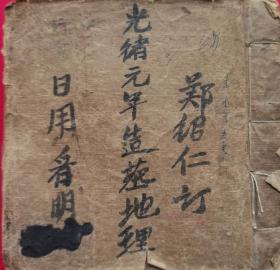 郑绍仁订
光绪元年造葬地理
日用看明